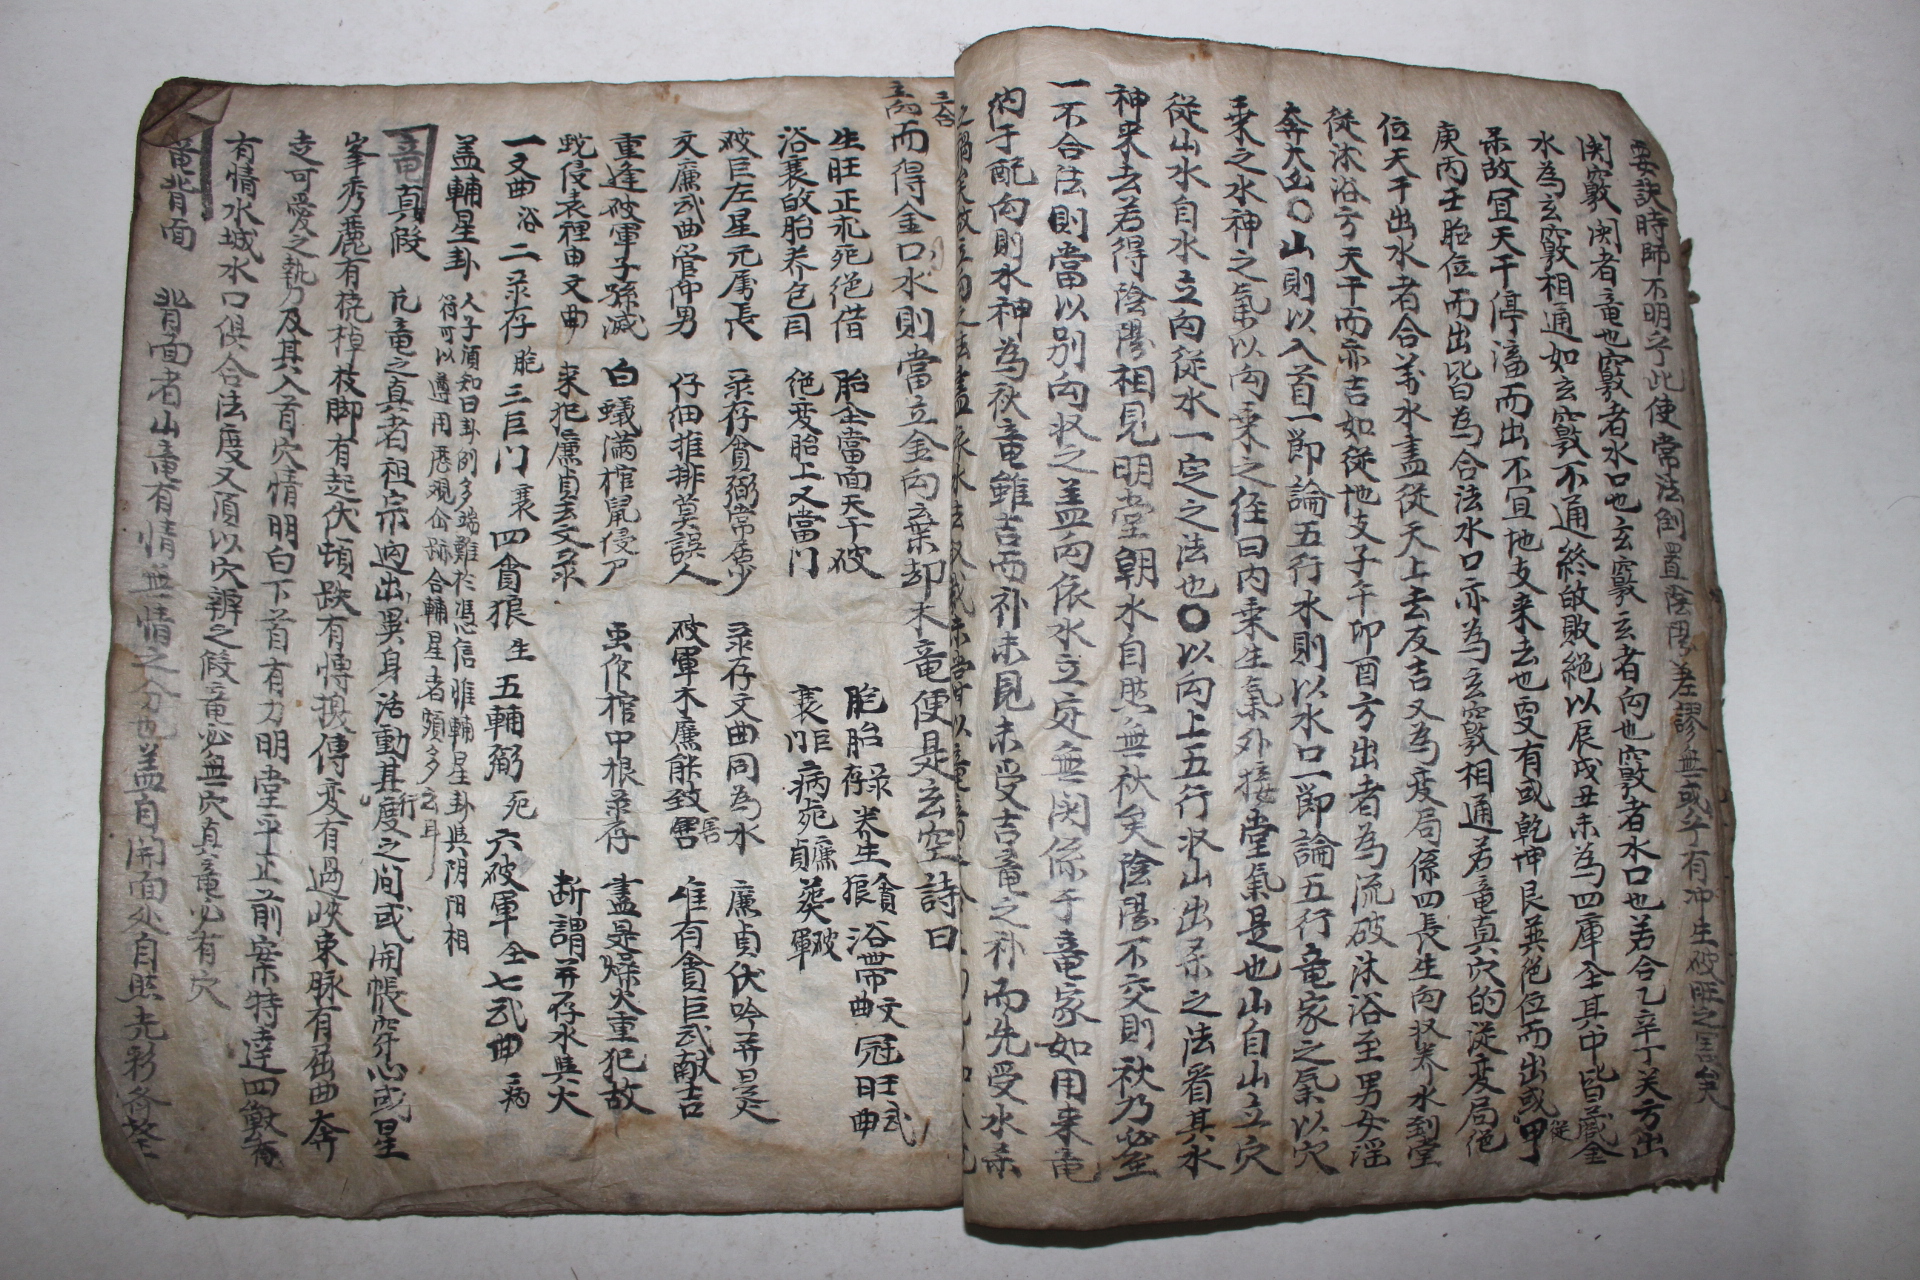 要訣時師不明乎此使常法倒置陰陽差謬無或乎有冲生破旺之害矣
関竅関者竜也竅者水口也玄竅玄者向也竅者水口也若合乙辛丁癸方出
水為玄竅相通如玄竅不通終敀敗絶以辰戌丑未為四庫全其中皆藏金
杀故冝天干停滀而出不冝地支来去也又有或乾坤艮巽絶位而出或從甲
庚丙壬胎位而出皆為合法水口亦為玄竅相通若竜真穴的從変局絶
位天干出水者合萬水盡從天上去反吉又為変局係四長生向収养水到堂
從沐浴方天干而亦吉如從地支子午卯酉方出者為流破沐浴至男女淫
奔大凶○山則以入首一節論五行水則以水口一節論五行竜家之氣以穴
乗之水神之氣以向乗之径曰内乗生氣外接堂氣是也山自山立穴
從山水自水立向從水一定之法也○以向上五行収山出杀之法看其水
神来去若得陰陽相見明堂朝水自然無秋矣陰陽不交則秋乃必至
一不合法則當以別向収之盖向依水立定無関係于竜家如用来竜
内于配向則水神為秋竜雖吉而补未見未受吉竜之补而先受水杀
三合
五向而得金口水則當立金向棄却木竜便是玄空詩曰
生旺正永死绝借 胎全當面天干破 胞胎禄存养生貪狼浴帶文曲冠旺武曲
浴衰敀胎养包目 绝変胎上又當门 衰巨门病死廉貞葬破軍
破巨左星元属長 禄存貪弼常居少 录存文曲同為水 廉貞伏吟并是火
文廉武曲管仲男 仔细推排莫誤人 破軍木廉能致害 唯有貪巨武献吉
重逢破軍子孫滅 白蟻满棺鼠侵尸 虫作棺中根录存 盡是燥火重犯故
蛇侵表裡由文曲 来犯廉貞去文录 断謂并存水與火
一文曲浴二录存胞三巨门衰四貪狼生五輔弼死六破軍全七武曲病
盖輔星卦 人子須知曰卦例多端難於憑信惟輔星卦與阴阳相
符可以遵用歷观仙跡合輔星者頗多云耳
竜真假 凢竜之真者祖宗迥出異身活動其行度之间或開帳穿心或星
峯秀麗有橈棹枝脚有起伏頓跌有愽換傳変有過峽束脉有屈曲奔
走可愛之執乃及其入首穴情明白下首有力明堂平正前案特達四獸有
有情水城水口倶合法度又須以穴辨之假竜必無穴真竜必有穴
竜背面 背面者山竜有情無情之分也盖自開面处自然光彩